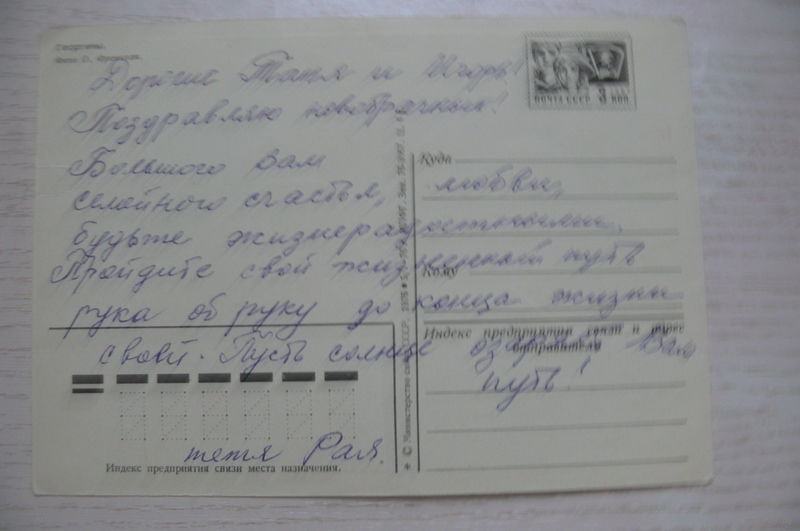 Георгины.
Фото О.
ПОЧТА СССР 3 КОП
Дорогие Таня и Игорь!
Поздравляю новобрачных!
Большого вам
семейного счастья, любви,
будьте жизнерадостными.
Пройдите свой жизненный путь
рука об руку до конца жизни
своей. Пусть солнце озаряет Вам
путь!
тетя Рая.
Куда
Кому
Индекс предприятия связи и адрес
отправителя
Индекс предприятия связи места назначения.
© Министерство связи СССР. 1978